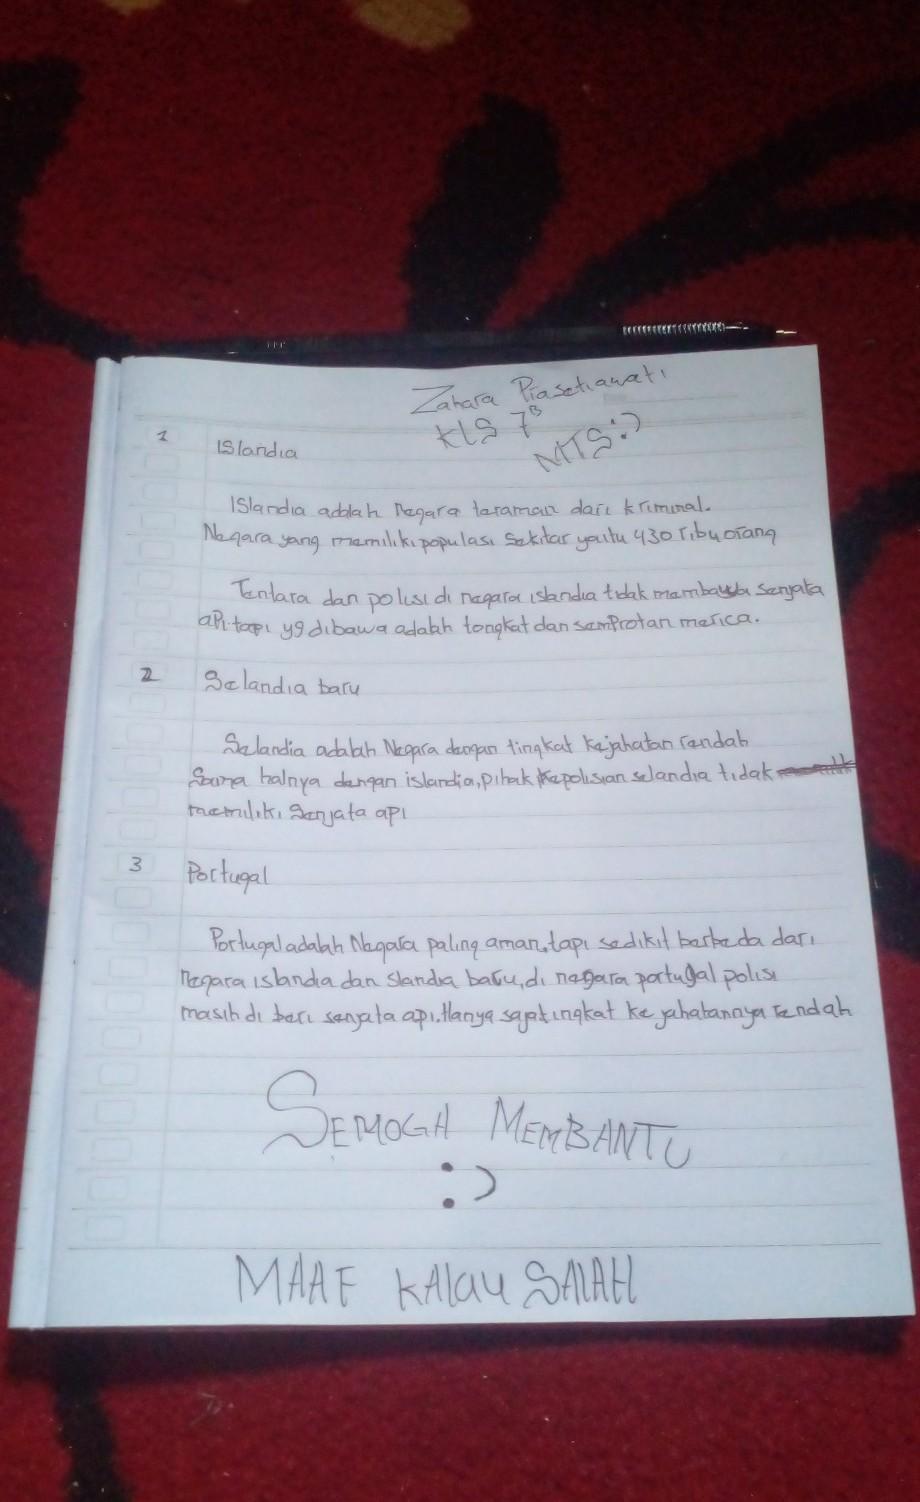 Zahara Prasetiawati
KLS 7B
MTS :)
1 Islandia
Islandia adalah Negara teraman dari kriminal.
Negara yang memiliki populasi sekitar yaitu 430 ribu orang
Tentara dan polisi di negara islandia tidak membawa senjata
api. tapi yg dibawa adalah tongkat dan semprotan merica.
2 Selandia baru
Selandia adalah Negara dengan tingkat kejahatan rendah
Sama halnya dengan islandia, pihak kepolisian selandia tidak
memiliki senjata api
3 Portugal
Portugal adalah Negara paling aman, tapi sedikit berbeda dari
negara islandia dan slandia baru, di negara portugal polisi
masih di beri senjata api. Hanya saja tingkat kejahatannya rendah
SEMOGA MEMBANTU
:)
MAAF KALAU SALAH